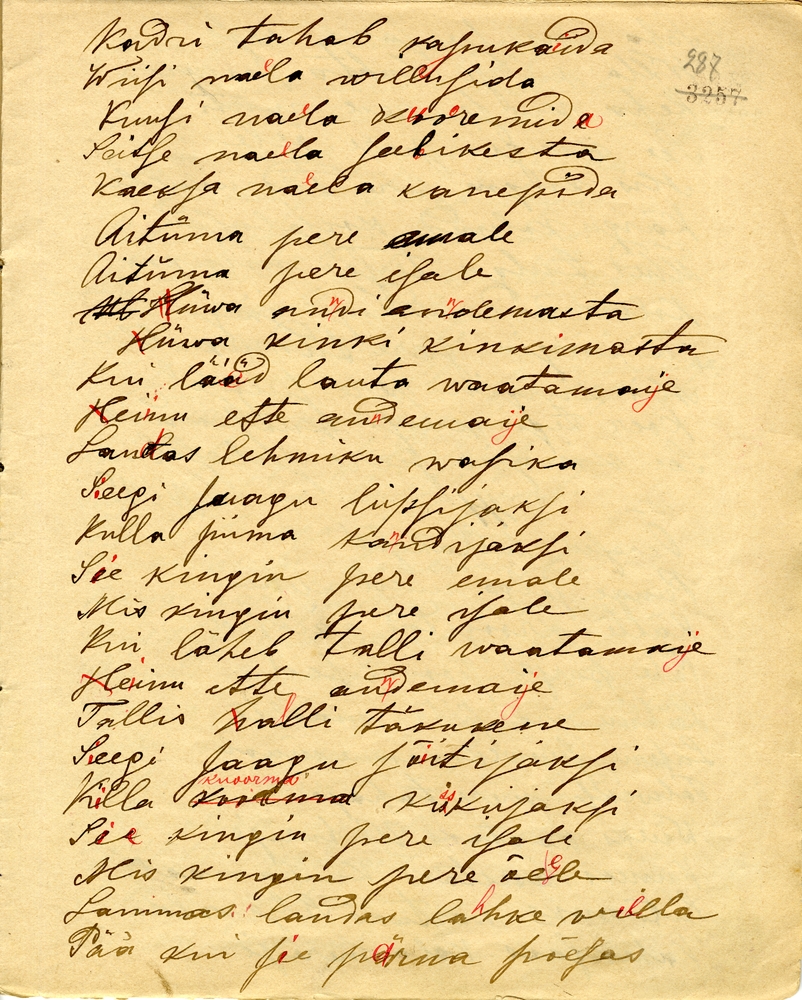 287
3257
Kadri tahab kapukaida
Wiisi naela willusida
Kuusi naela kuoremida
Seitse naela seebikesta
Kaeksa naela kanepida
Aitüma pere emale
Aitüma pere isale
Hüwa andi andemasta
Hüwa kinki kinkimasta
Kui lääd lauta waatamaije
Heinu ette andemaije
Laudas lehmiku wasika
Seegi saagu lüpsijaksi
Kulla piima kandijaksi
Sie kingin pere emale
Mis kingin pere isale
Kui läheb talli waatamaije
Heinu ette andemaije
Tallis halli täkukene
Seegi saagu sõitijaksi
Külla kuoorma kiskujaksi
Sie kingin pere isale
Mis kingin pere õele
Lammas laudas lahke willa
Pää kui sie pärna põesas